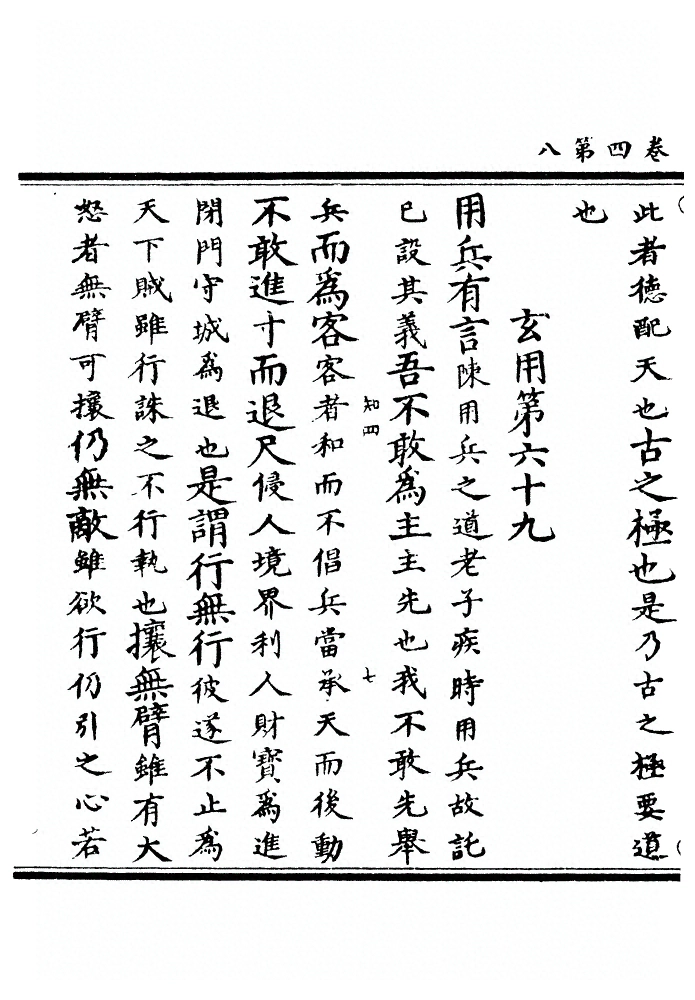 卷四第八
此者德配天也古之極也是乃古之極要道
也
玄用第六十九
用兵有言陳用兵之道老子疾時用兵故託
已設其義吾不敢爲主主先也我不敢先舉
知四
七
兵而爲客客者和而不倡兵當承天而後動
不敢進寸而退尺侵人境界利人財寶爲進
閉門守城爲退也是謂行無行彼遂不止爲
天下賊雖行誅之不行執也攘無臂雖有大
怒者無臂可攘仍無敵雖欲行仍引之心若